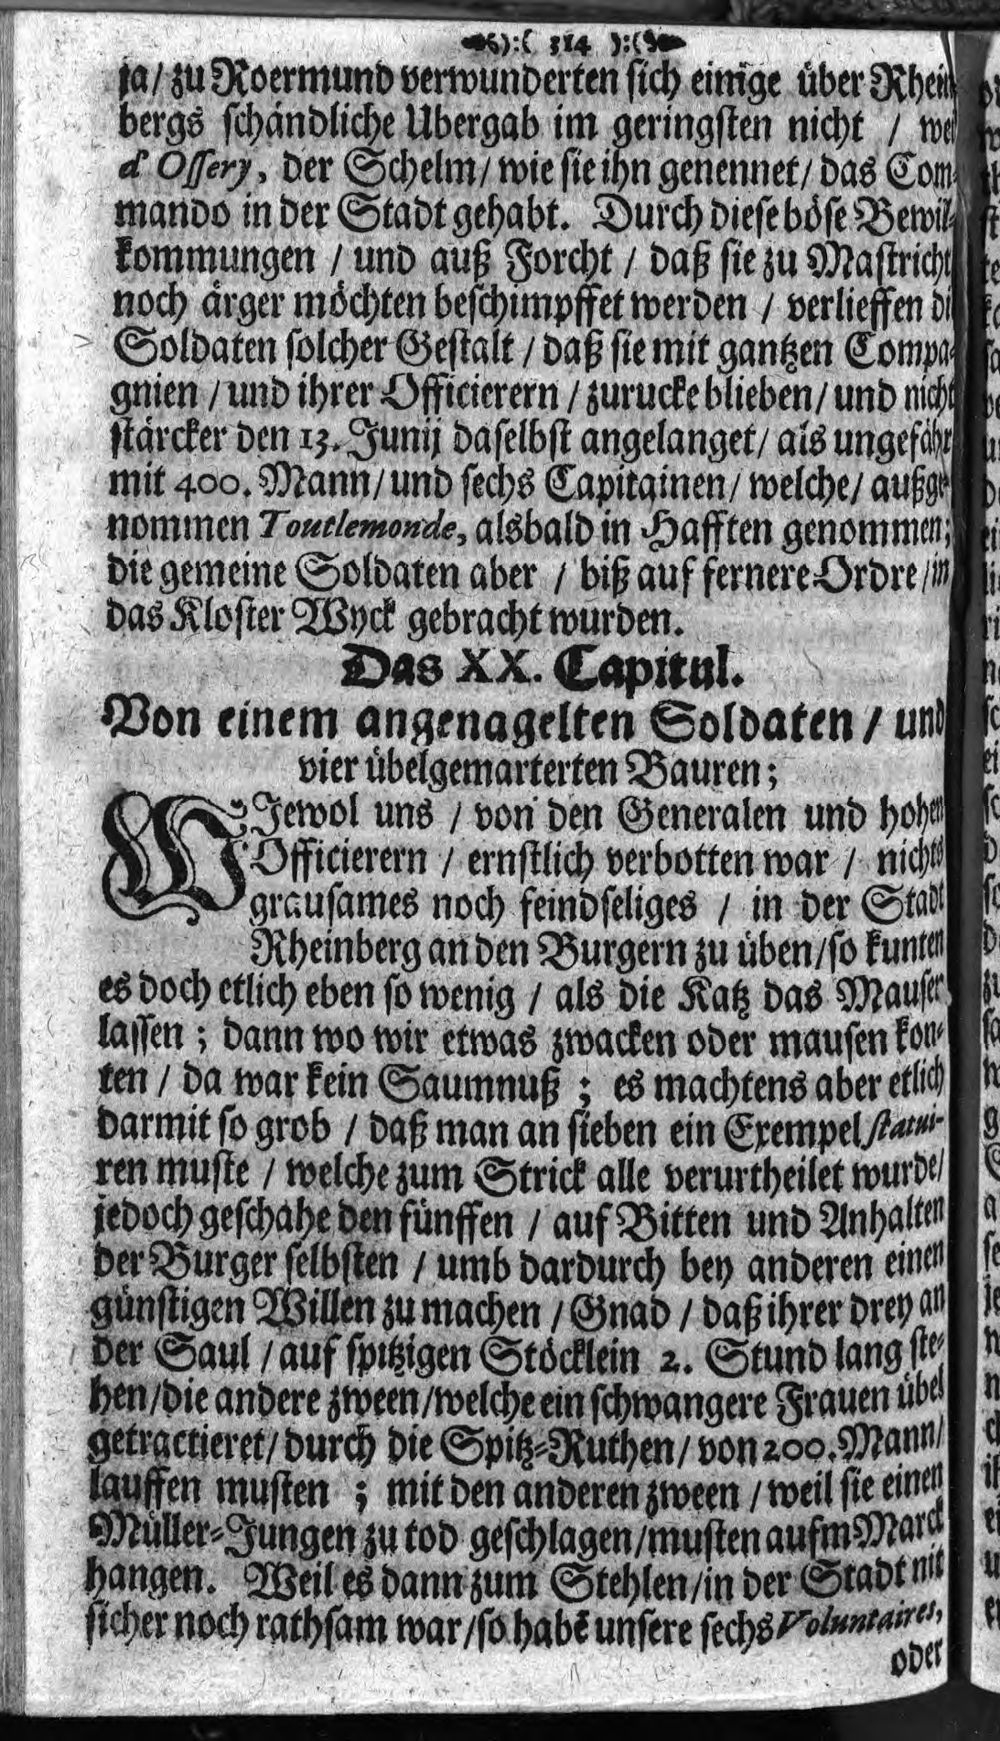 ):( 314 ):(
ja / zu Roermund verwunderten sich einige über Rhein
bergs schändliche Ubergab im geringsten nicht / weil
d'Ossery, der Schelm / wie sie ihn genennet / das Com-
mando in der Stadt gehabt. Durch diese böse Bewil-
kommungen / und auß Forcht / daß sie zu Mastricht
noch ärger möchten beschimpffet werden / verlieffen di
Soldaten solcher Gestalt / daß sie mit gantzen Compa-
gnien / und ihrer Officierern / zurucke blieben / und nicht
stärcker den 13. Junij daselbst angelanget / als ungefähr
mit 400. Mann / und sechs Capitainen / welche / außge-
nommen Toutlemonde, alsbald in Hafften genommen;
die gemeine Soldaten aber / biß auf fernere Ordre / in
das Kloster Wyck gebracht wurden.
Das XX. Capitul.
Von einem angenagelten Soldaten / und
vier übelgemarterten Bauren;
WJewol uns / von den Generalen und hohen
Officierern / ernstlich verbotten war / nichts
grausames noch feindseliges / in der Stadt
Rheinberg an den Burgern zu üben / so kunten
es doch etlich eben so wenig / als die Katz das Mausen
lassen; dann wo wir etwas zwacken oder mausen kon-
ten / da war kein Saumnuß; es machtens aber etlich
darmit so grob / daß man an sieben ein Exempel statui-
ren muste / welche zum Strick alle verurtheilet wurde /
jedoch geschahe den fünffen / auf Bitten und Anhalten
der Burger selbsten / umb dardurch bey anderen einen
günstigen Willen zu machen / Gnad / daß ihrer drey an
der Saul / auf spitzigen Stöcklein 2. Stund lang ste-
hen / die andere zween / welche ein schwangere Frauen übel
getractieret / durch die Spitz-Ruthen / von 200. Mann /
lauffen musten; mit den anderen zween / weil sie einen
Müller-Jungen zu tod geschlagen / musten aufm Marck
hangen. Weil es dann zum Stehlen / in der Stadt nit
sicher noch rathsam war / so habẽ unsere sechs Voluntaires,
oder